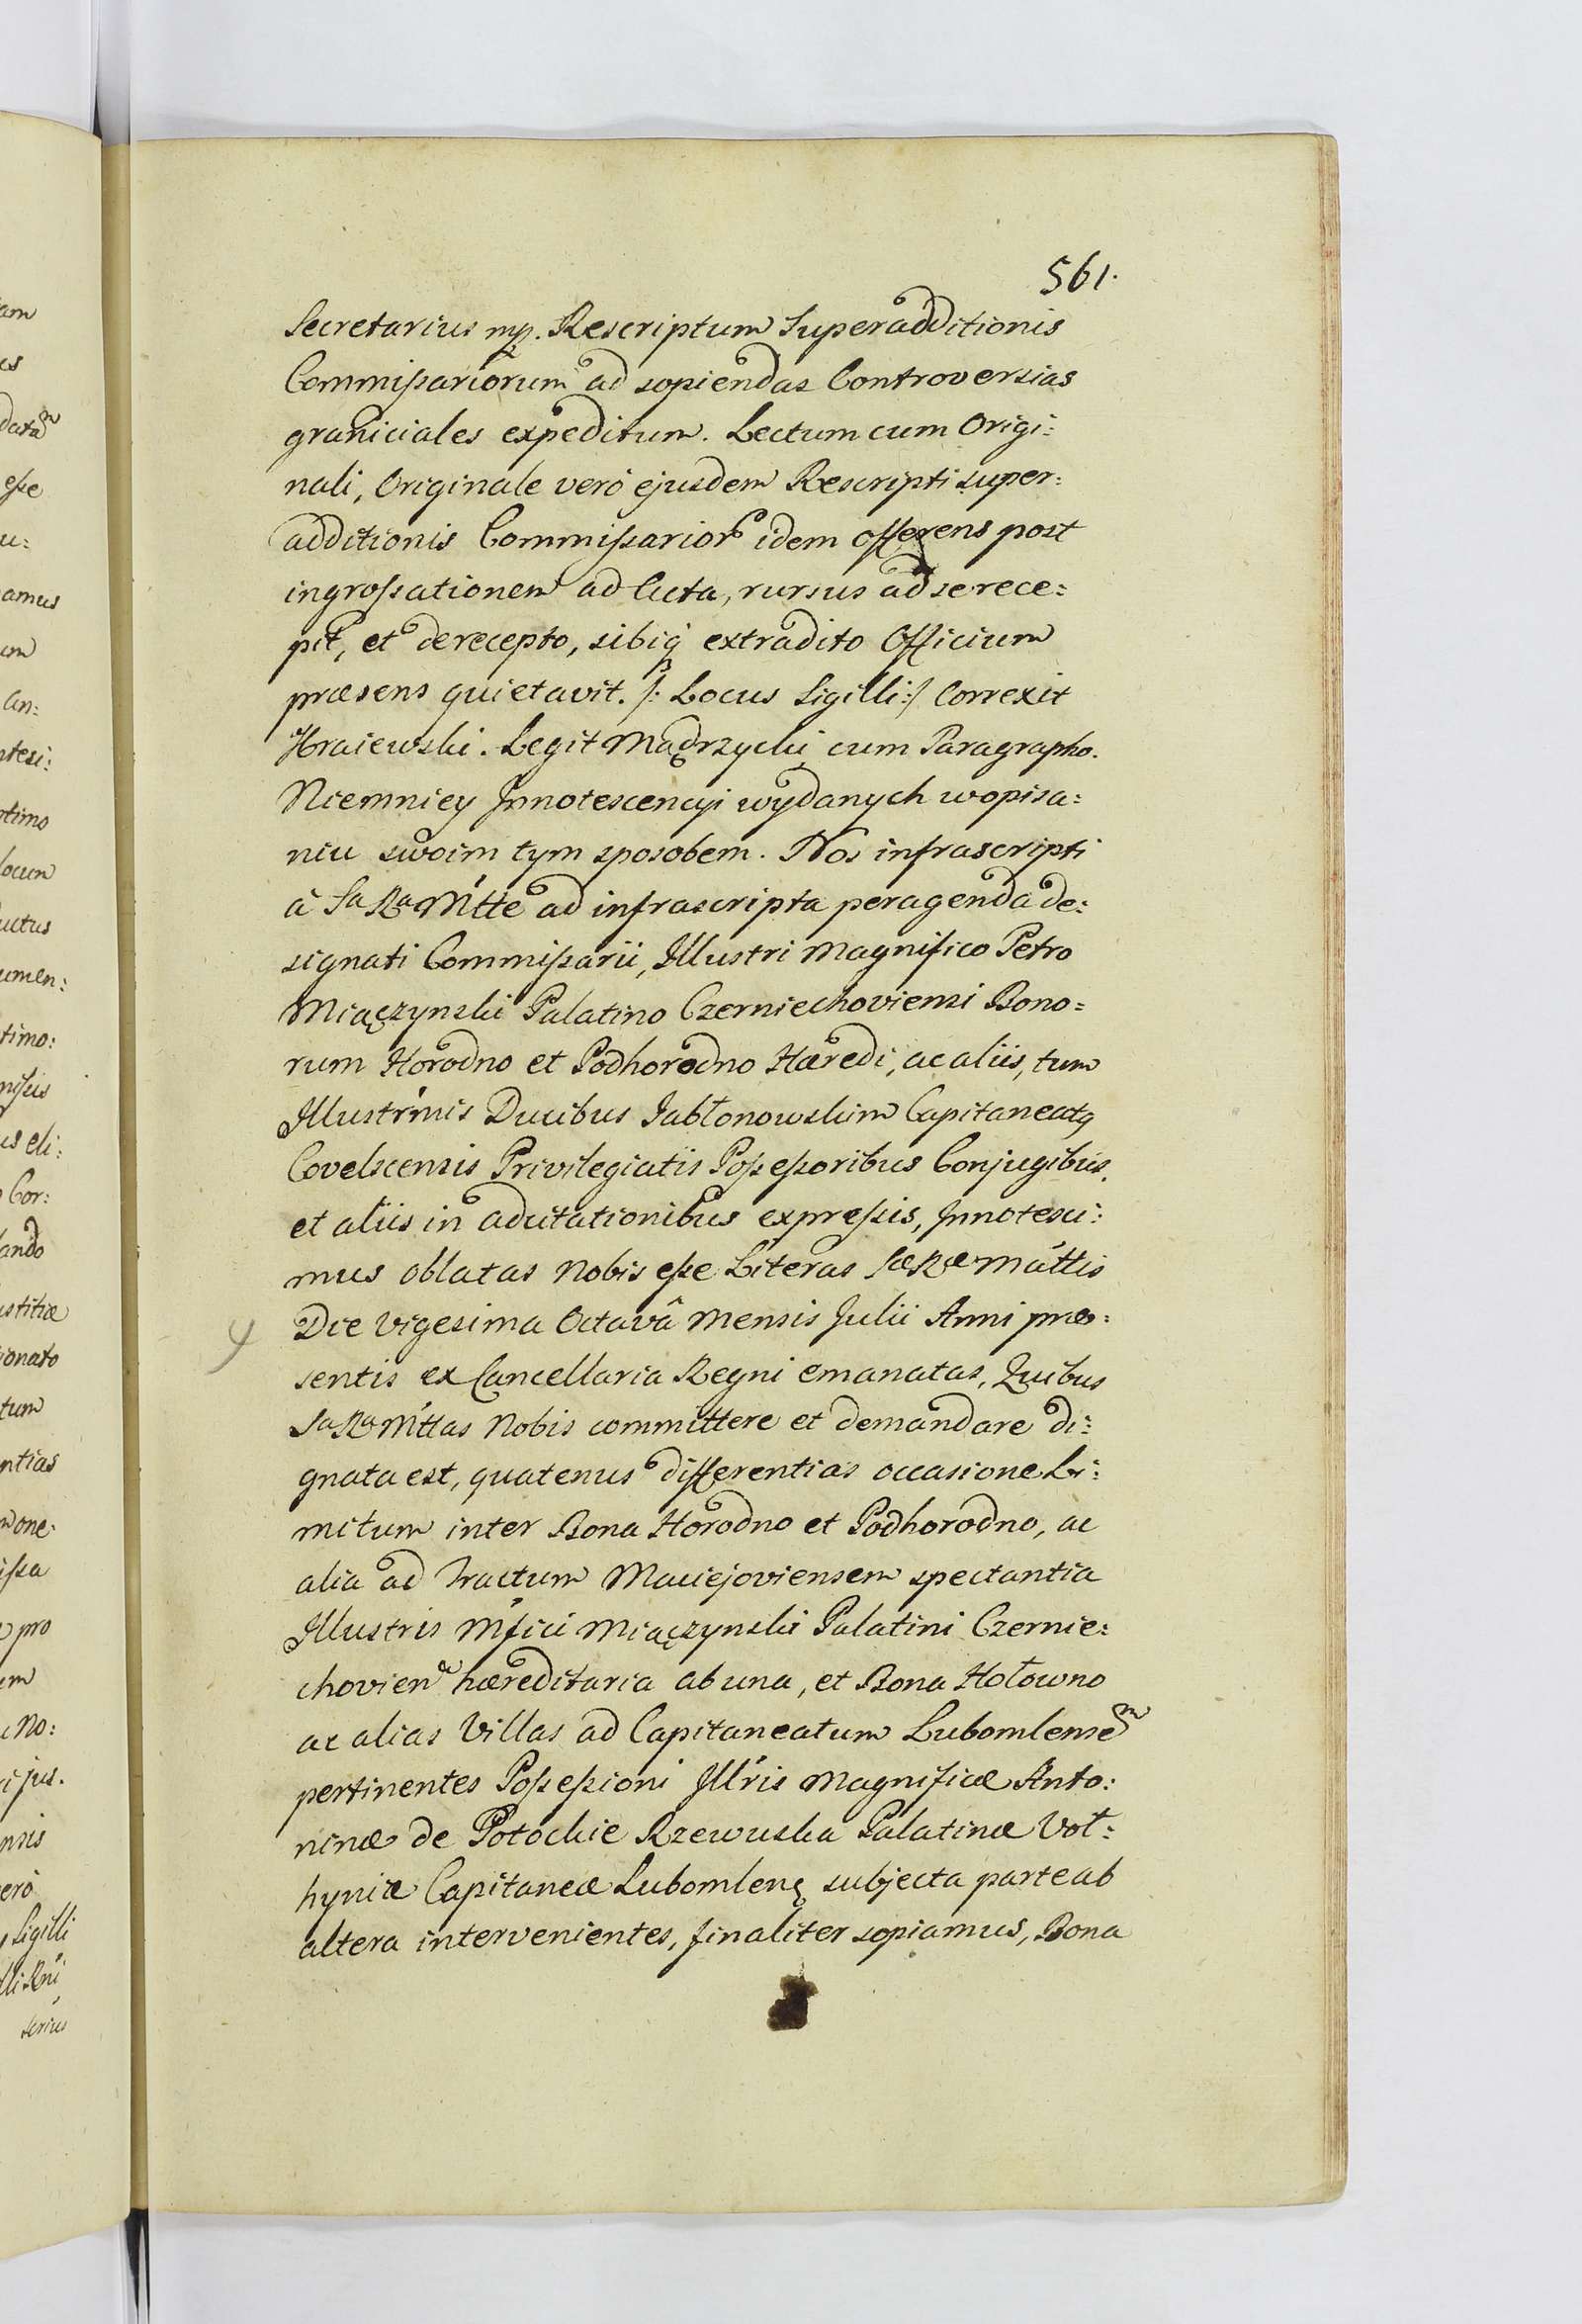 561.
Secretarius mp. Rescriptum Superadditionis
Commissariorum ad sopiendas Controversias
graniciales expeditum. Lectum cum Origi:
nali, Originale verò ejusdem Rescripti super:
additionis Commissarior idem offerens post
ingrossationem ad Acta, rursus ad se rece:
pit, et de recepto, sibiq extradito Officium
præsens quietavit. /: Locus Sigilli :/ Correxit
Hraiewski. Legit Mądrzycki cum Paragrapho.
Niemniey Innotescencyi wydanych w opisa:
niu swoim tym sposobem. Nos infrascripti
à Sa Ra Mtte ad infrascripta peragenda de:
signati Commissarii, Illustri Magnifico Petro
Miączynski Palatino Czerniechoviensi Bono=
rum Horodno et Podhorodno Hæredi, ac aliis, tum
Illustrmis Ducibus Jabłonowskim Capitaneatq
Covelscensis Privilegiatis Possessoribus Conjugibus,
et aliis in adcitationibus expressis, Innotesci:
mus oblatas Nobis esse Literas Sæ Ræ Mattis
Die Vigesima Octavâ Mensis Julii Anni præ:
sentis ex Cancellaria Regni emanatas, Quibus
Sa Ra Mttas Nobis committere et demandare di:
gnata est, quatenus differentias occasione Li:
mitum inter Bona Horodno et Podhorodno, ac
alia ad Tractum Maciejoviensem spectantia
Illustris Mfici Miączynski Palatini Czernie:
chovien hæreditaria ab una, et Bona Hołowno
ac alias Villas ad Capitaneatum Lubomlensem
pertinentes Possessioni Illris Magnificæ Anto:
ninæ de Potockie Rzewuska Palatinæ Voł:
hyniæ Capitaneæ Lubomlen subjecta parte ab
altera intervenientes, finaliter sopiamus, Bona